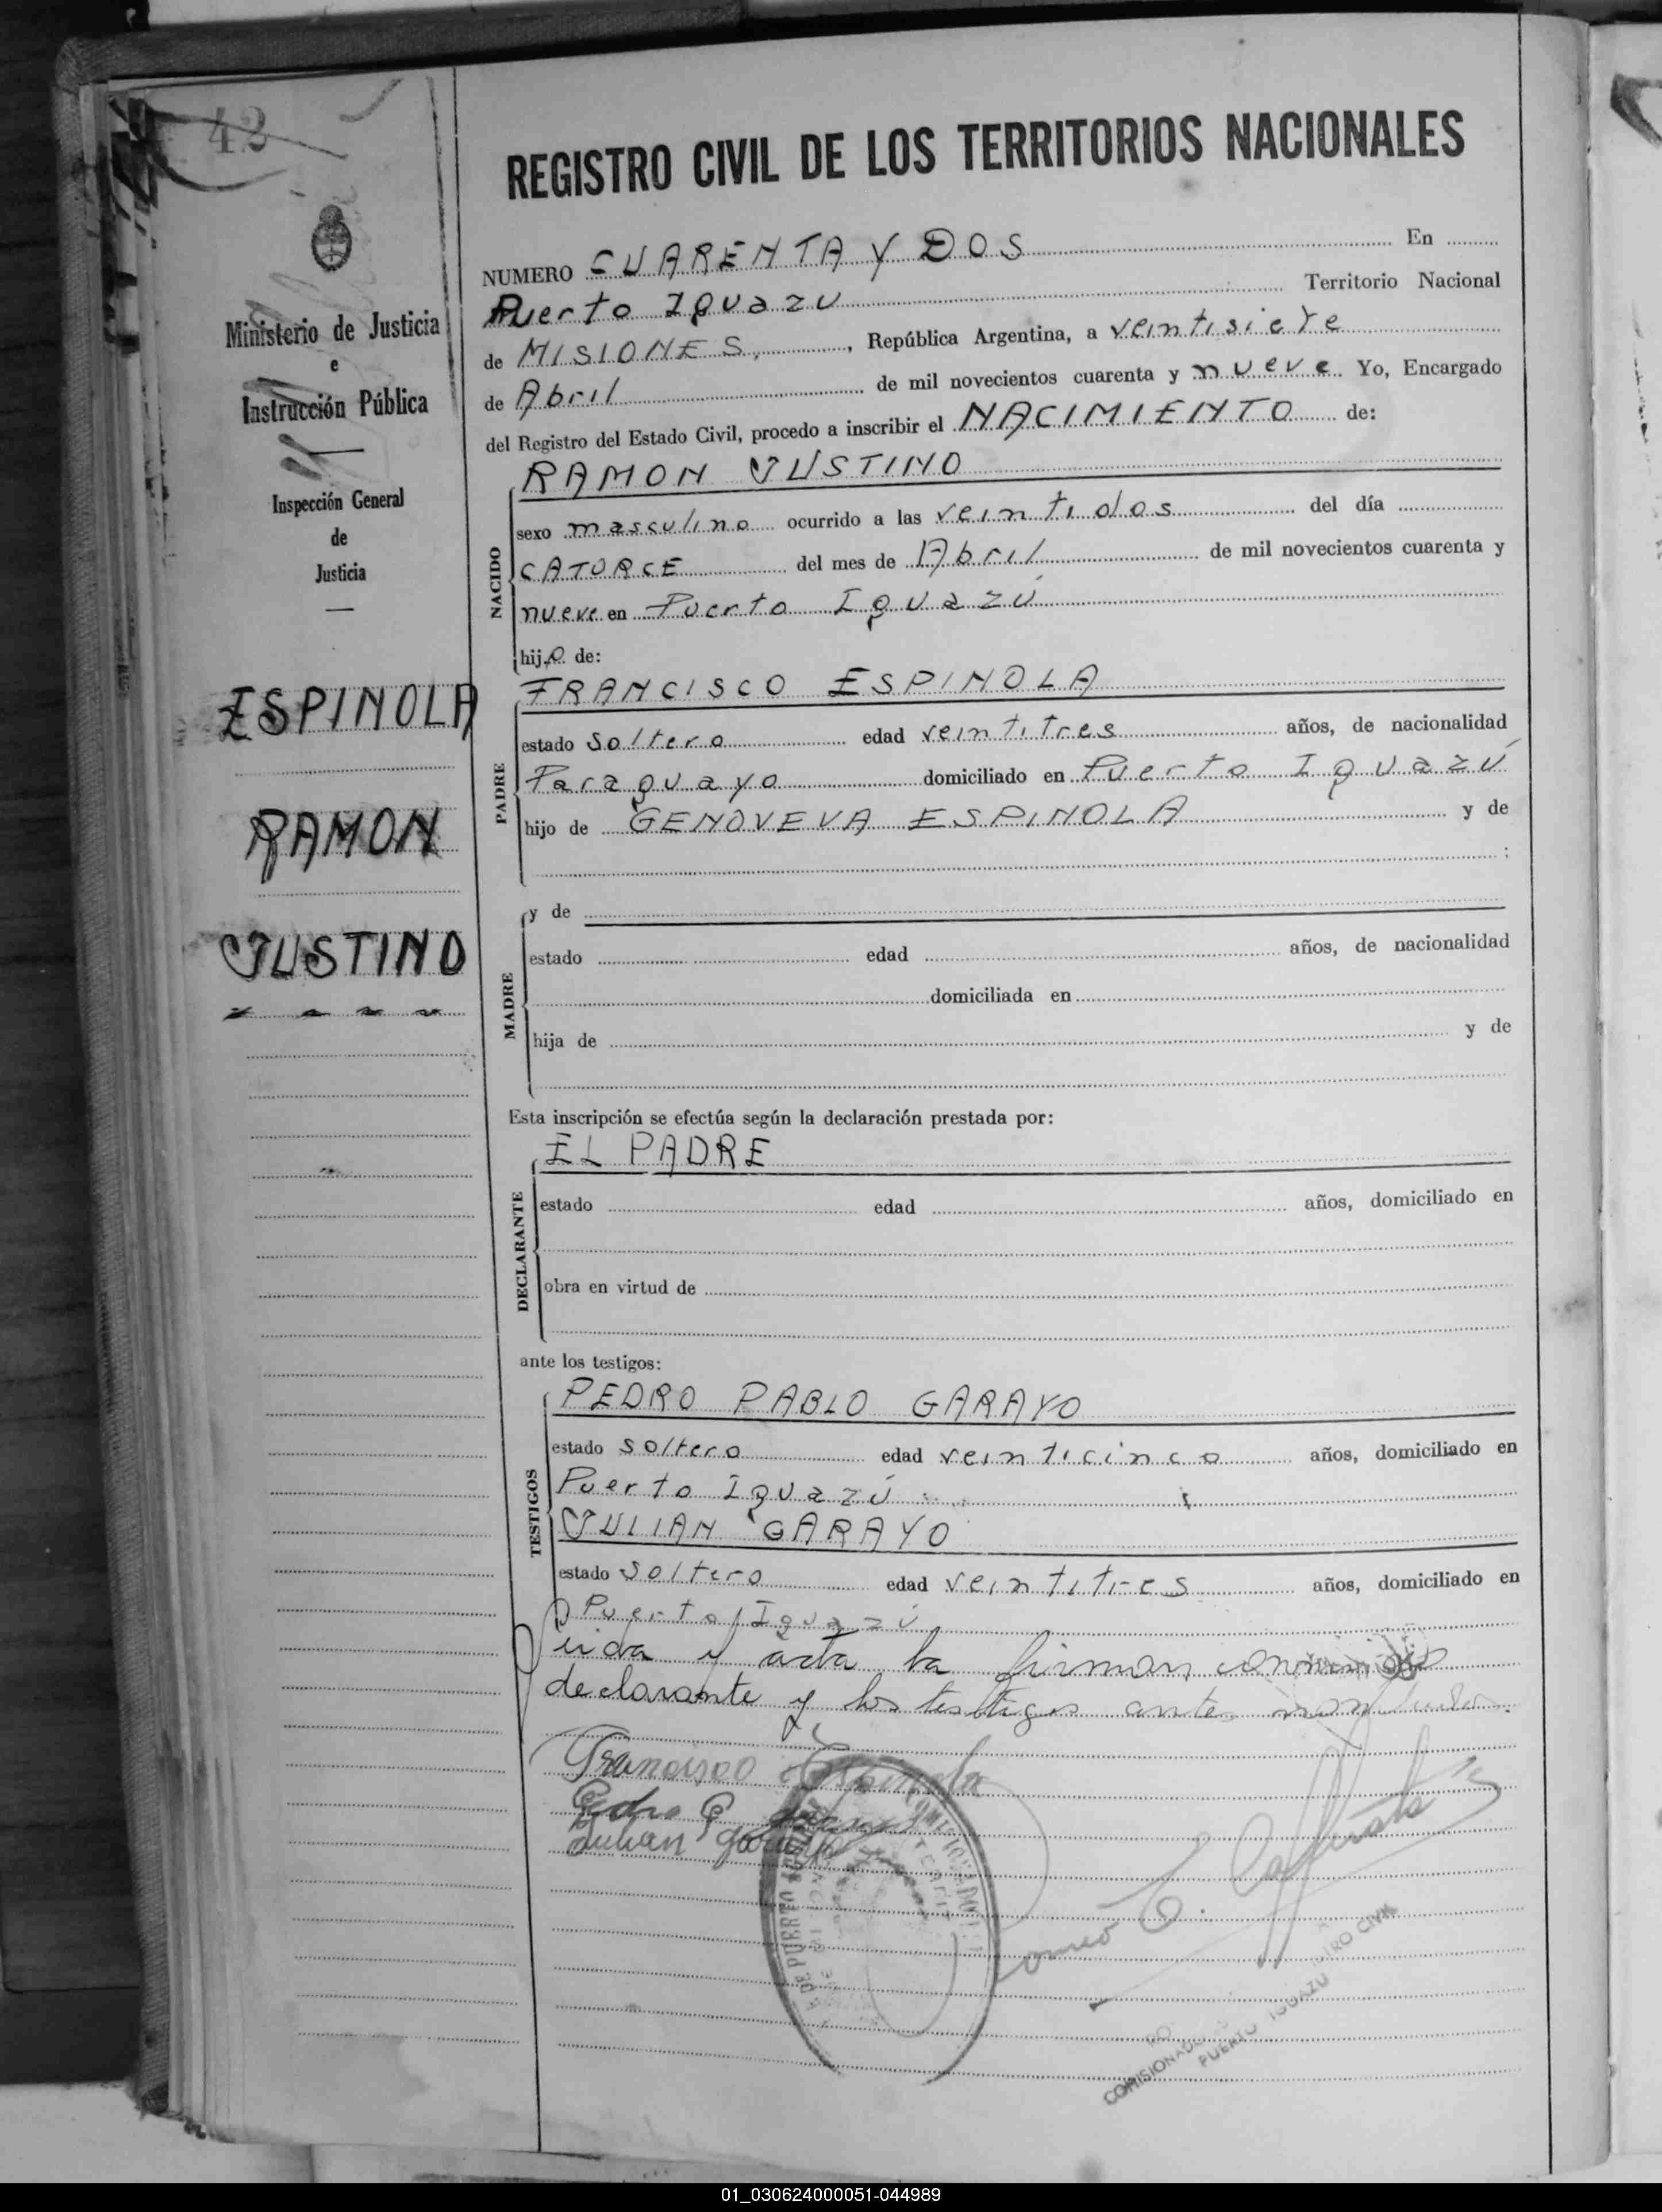 42
REGISTRO CIVIL DE LOS TERRITORIOS NACIONALES
Ministerio de Justicia
e
Instrucción Pública
Inspección General
de
Justicia
ESPINOLA
RAMON
JUSTINO
NUMERO CUARENTA Y DOS En
Puerto Iguazu Territorio Nacional
de MISIONES, República Argentina, a veintisiete
de Abril de mil novecientos cuarenta y nueve Yo, Encargado
del Registro del Estado Civil, procedo a inscribir el NACIMIENTO de:
RAMON JUSTINO
NACIDO
sexo masculino ocurrido a las veintidos del día
CATORCE del mes de Abril de mil novecientos cuarenta y
nueve en Puerto Iguazú
hijo de:
FRANCISCO ESPINOLA
PADRE
estado Soltero edad veintitres años, de nacionalidad
Paraguayo domiciliado en Puerto Iguazú
hijo de GENOVEVA ESPINOLA y de
;
y de
MADRE
estado edad años, de nacionalidad
domiciliada en
hija de y de
Esta inscripción se efectúa según la declaración prestada por:
EL PADRE
DECLARANTE
estado edad años, domiciliado en
obra en virtud de
ante los testigos:
PEDRO PABLO GARAYO
TESTIGOS
estado soltero edad veinticinco años, domiciliado en
Puerto Iguazú
JULIAN GARAYO
estado soltero edad veintitres años, domiciliado en
Puerto Iguazú
leida el acta la firman conmigo
declarante y los testigos antes
Francisco Espinola
Pedro P
Julian Garayo
DE PUERTO
COMISIONADO
PUERTO IGUAZU
01_030624000051-044989